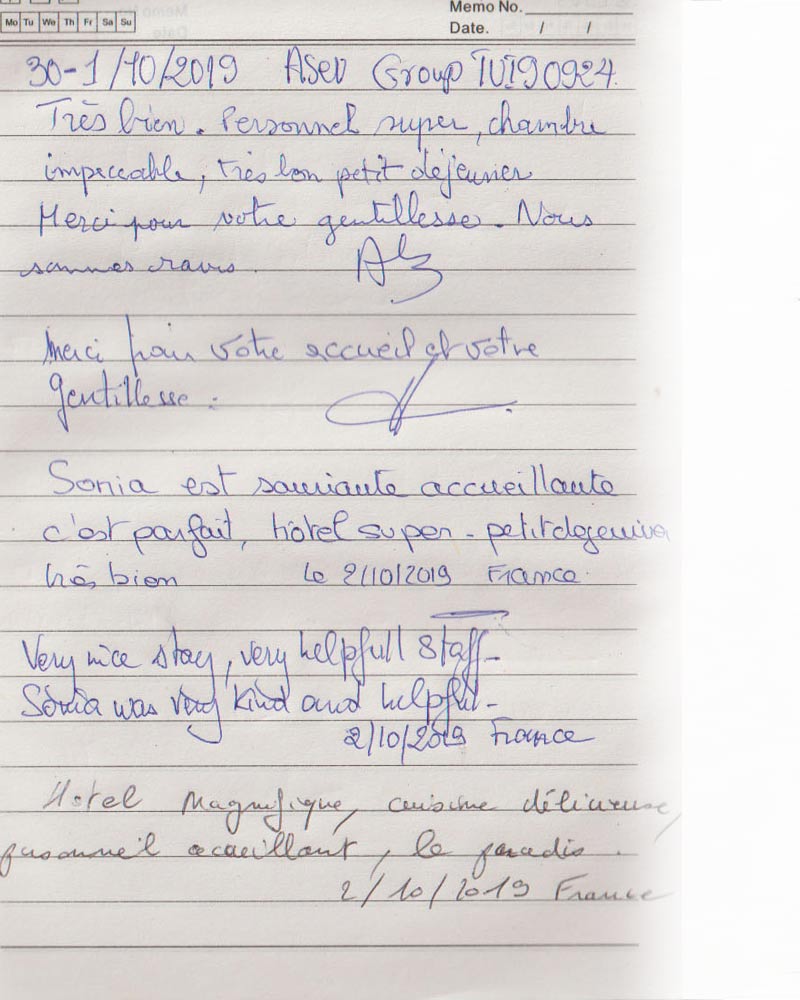 Memo No.
Mo Tu We Th Fr Sa Su
Date. / /
30-1/10/2019 Asev Group TUI90924
Très bien. Personnel super, chambre
impeccable, très bon petit déjeuner
Merci pour votre gentillesse. Nous
sommes ravis.
Merci pour votre accueil et votre
gentillesse.
Sonia est souriante accueillante
c'est parfait, hôtel super - petit dejeuner
très bien Le 2/10/2019 France
Very nice stay, very helpfull Staff-
Sonia was very kind and helpful-
2/10/2019 France
Hotel Magnifique, cuisine délicieuse,
personnel accueillant, le paradis.
2/10/2019 France